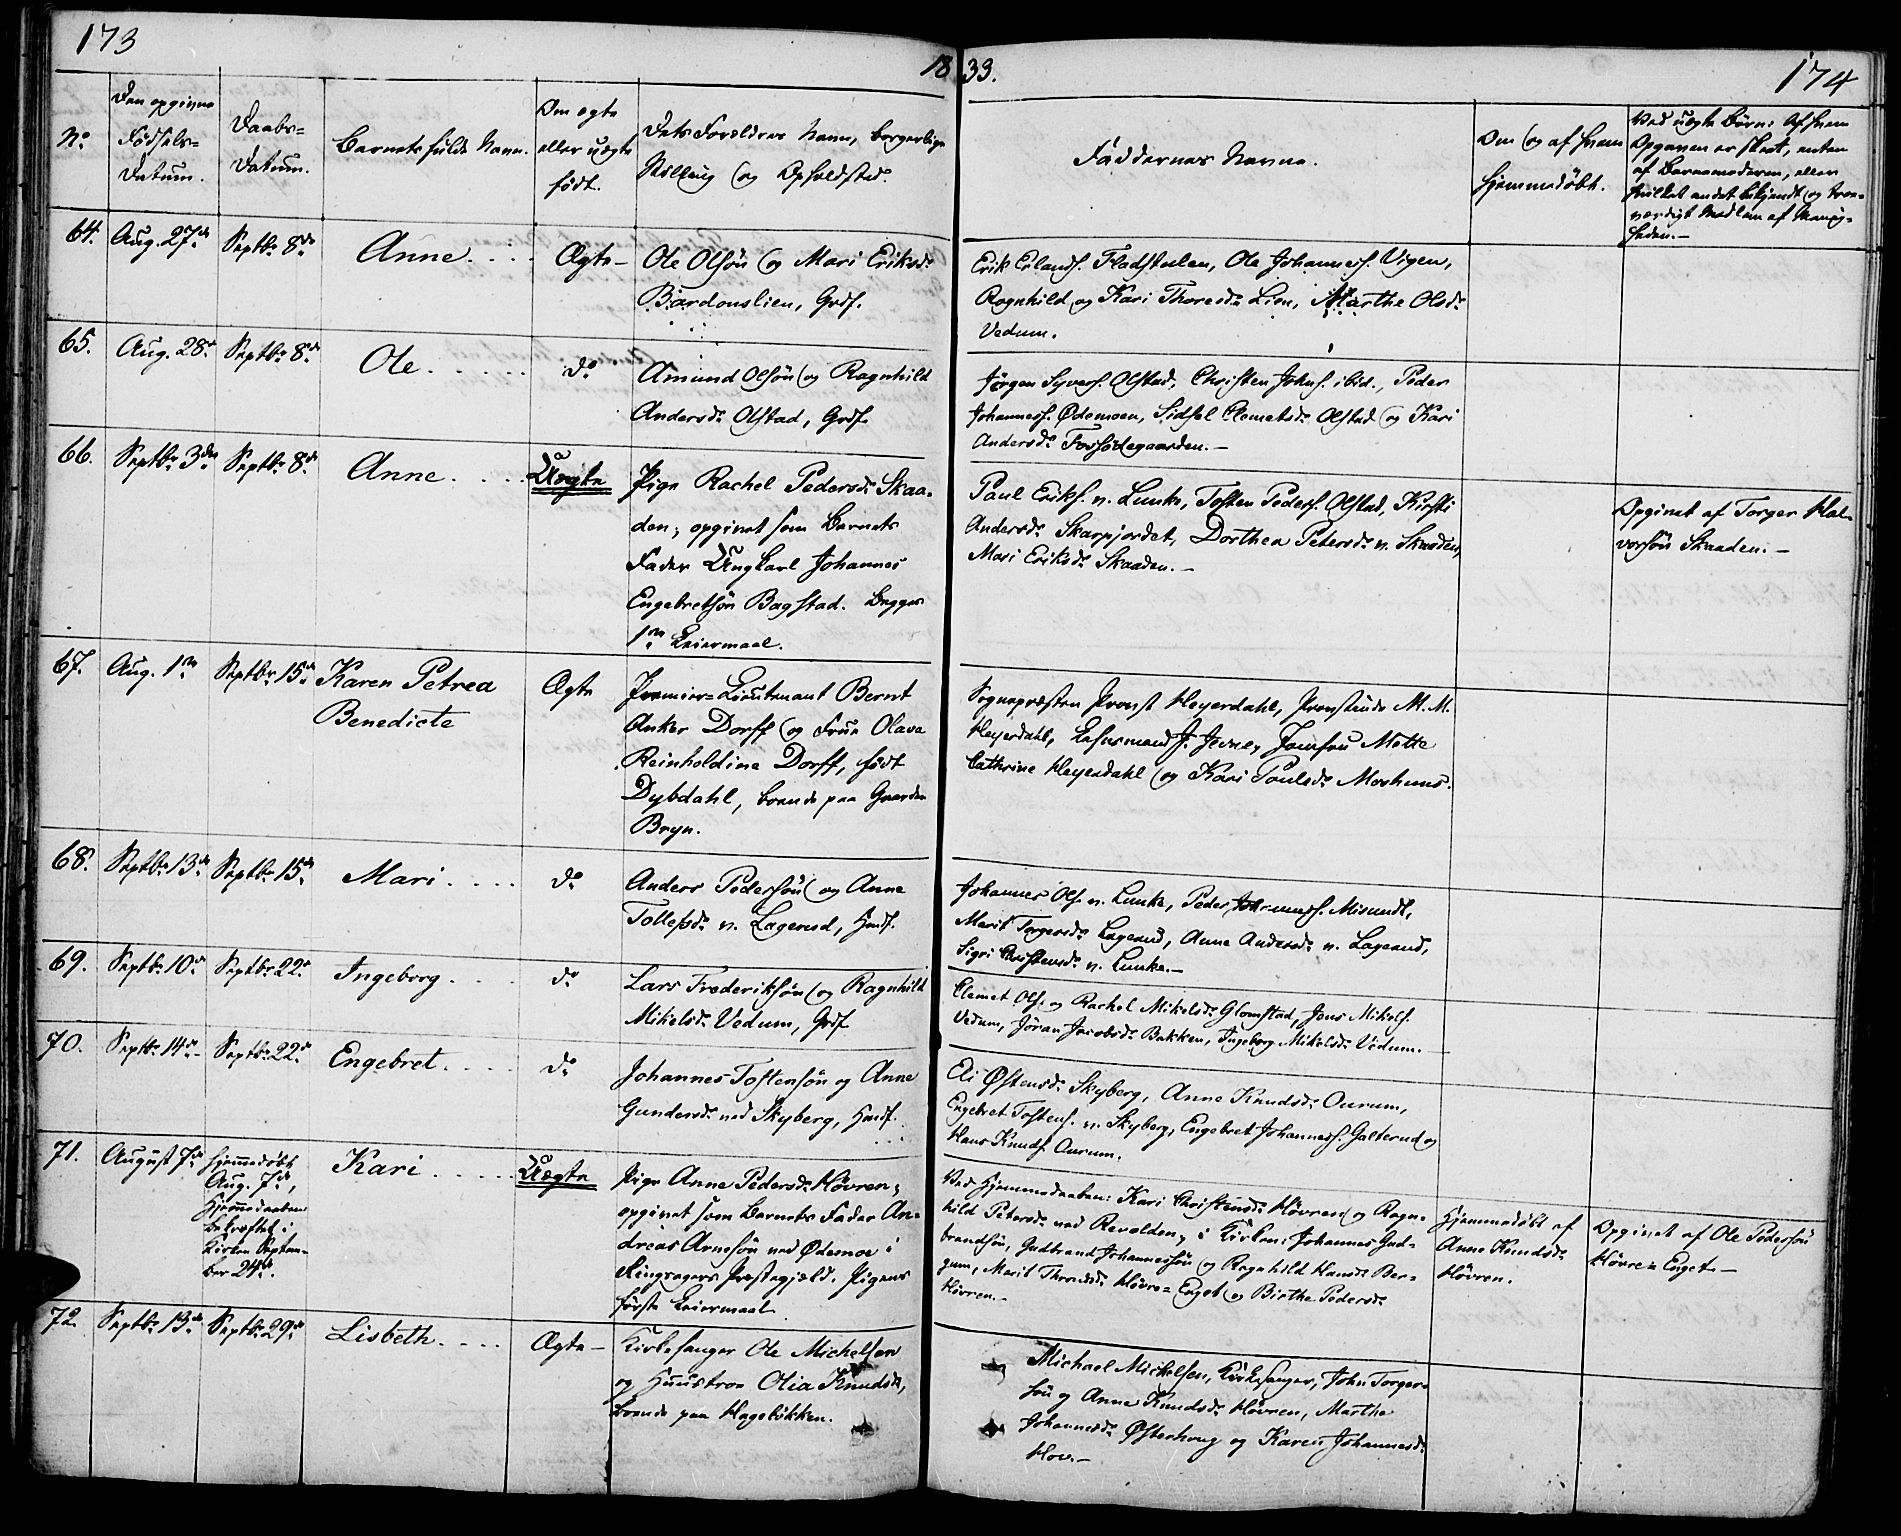 173
18 33.
174
No.
Den opgivne Fødsels-Datum.
Daabs-Datum.
Barnets fulde Navn.
Om ægte eller uægte født.
Dets Forældres Navn, borgerlige Stilling og Opholdsted.
Faddernes Navne.
Om og af hvem hjemmedøbt.
Ved uægte Børn: Af hvem Opgaven er skeet, enten af Barnemoderen, eller hvilket andet bekjendt og troværdigt Medlem af Menigheden.-
64.
Aug. 27de
Septbr. 8de
Anne. . . .
Ægte-
Ole Olsøn og Mari Eriksdr
Bardonslien, Grdf.
Erik Erlands. Fladstulen, Ole Johanness. Vigen,
Ragnhild og Kari Thoresdr Lien, Marthe Olsdr
Vedum.
65.
Aug. 28de
Septbr. 8de
Ole. . . . . .
do
Amund Olsøn og Ragnhild
Andersdr Olstad, Grdf.
Jørgen Syvers. Olstad, Christen Johns. ibid., Peder
Johanness. Ødemoen, Sidsel Clemetsdr Olstad og Kari
Andersdr Forsødegaarden.-
66.
Septbr. 3die
Septbr. 8de
Anne. . . .
Uægte
Pige Rachel Pedersdr Skaa-
den; opgivet som Barnets
Fader Ungkarl Johannes
Engebretsøn Bagstad. Begges
1ste Leiermaal.
Paul Eriks. n. Lunke, Tosten Peders. Olstad, Kirsti
Andersdr Skarpjordet, Dorthea Petersdr n. Skaaden,
Mari Eriksdr Skaaden.-
Opgivet af Torger Hal-
vorsøn Skaaden.-
67.
Aug. 1ste
Septbr. 15de
Karen Petrea
Benedicte
Ægte
Premier-Lieutenant Bernt
Anker Dorff og Frue Olava
Reinholdine Dorff, født
Dybdahl, boende paa Gaarden
Bryn.
Sognepræsten Provst Heyerdahl, Provstinde M. M.
Heyerdahl, Lehnsmand J. Jevne, Jomfru Mette
Cathrine Heyerdahl og Kari Poulsdr Moshuus.
68.
Septbr. 13de
Septbr. 15de
Mari. . . .
do
Anders Pedersøn og Anne
Tollefsdr n. Lagerud, Husf.
Johannes Ols. n. Lunke, Peder Johanness. Misundt,
Marit Torgersdr Lagerud, Anne Andersdr n. Lagerud,
Sigri Christensdr n. Lunke.-
69.
Septbr. 10de
Septbr. 22de
Ingeborg. . . .
do
Lars Frederiksøn og Ragnhild
Mikelsdr Vedum, Grdf
Clemet Ols. og Rachel Mikelsdr Glomstad, Jens Mikels.
Vedum, Jøran Jacobsdr Bakken, Ingeborg Mikelsdr Vedum.-
70.
Septbr. 14de
Septbr. 22de
Engebret. . . .
do
Johannes Tostensøn og Anne
Gundersdr ned Skyberg, Husf.
Eli Østensdr Skyberg, Anne Knudsdr Ourum,
Engebret Tostens. n. Skyberg, Engebret Johanness. Galterud og
Hans Knuds. Ourum.
71.
August 7de
Hjemmedøbt
Aug. 7de,
Hjemmedaaben
bekræftet i
Kirken Septem-
ber 24de.
Kari. . . . .
Uægte
Pige Anne Pedersdr Høvren;
opgivet som Barnets Fader An-
dreas Arnesøn ned Ødemoe i
Ringsagers Præstegjæld. Pigens
første Leiermaal.
Ved Hjemmedaaben: Kari Christensdr Høvren og Ragn-
hild Petersdr ned Revolden; i Kirken: Johannes Gud-
brandsøn, Gudbrand Johannessøn og Ragnhild Hansdr Ber-
gum, Marit Throndsdr Høvre-Enget og Birthe Pedersdr
Høvren.-
Hjemmedøbt af
Anne Knudsdr
Høvren.
Opgivet af Ole Pedersøn
Høvre-Enget.-
72.
Septbr. 13de
Septbr. 29de
Lisbeth. . . .
Ægte-
Kirkesanger Ole Michelsen
og Huustroe Olia Knudsdr,
boende paa Hageløkken.
Michael Michelsen, Kirkesanger, John Torger-
søn og Anne Knudsdr Høvren, Marthe
Johannesdr Østerhoug og Karen Johannesdr
Hov.-